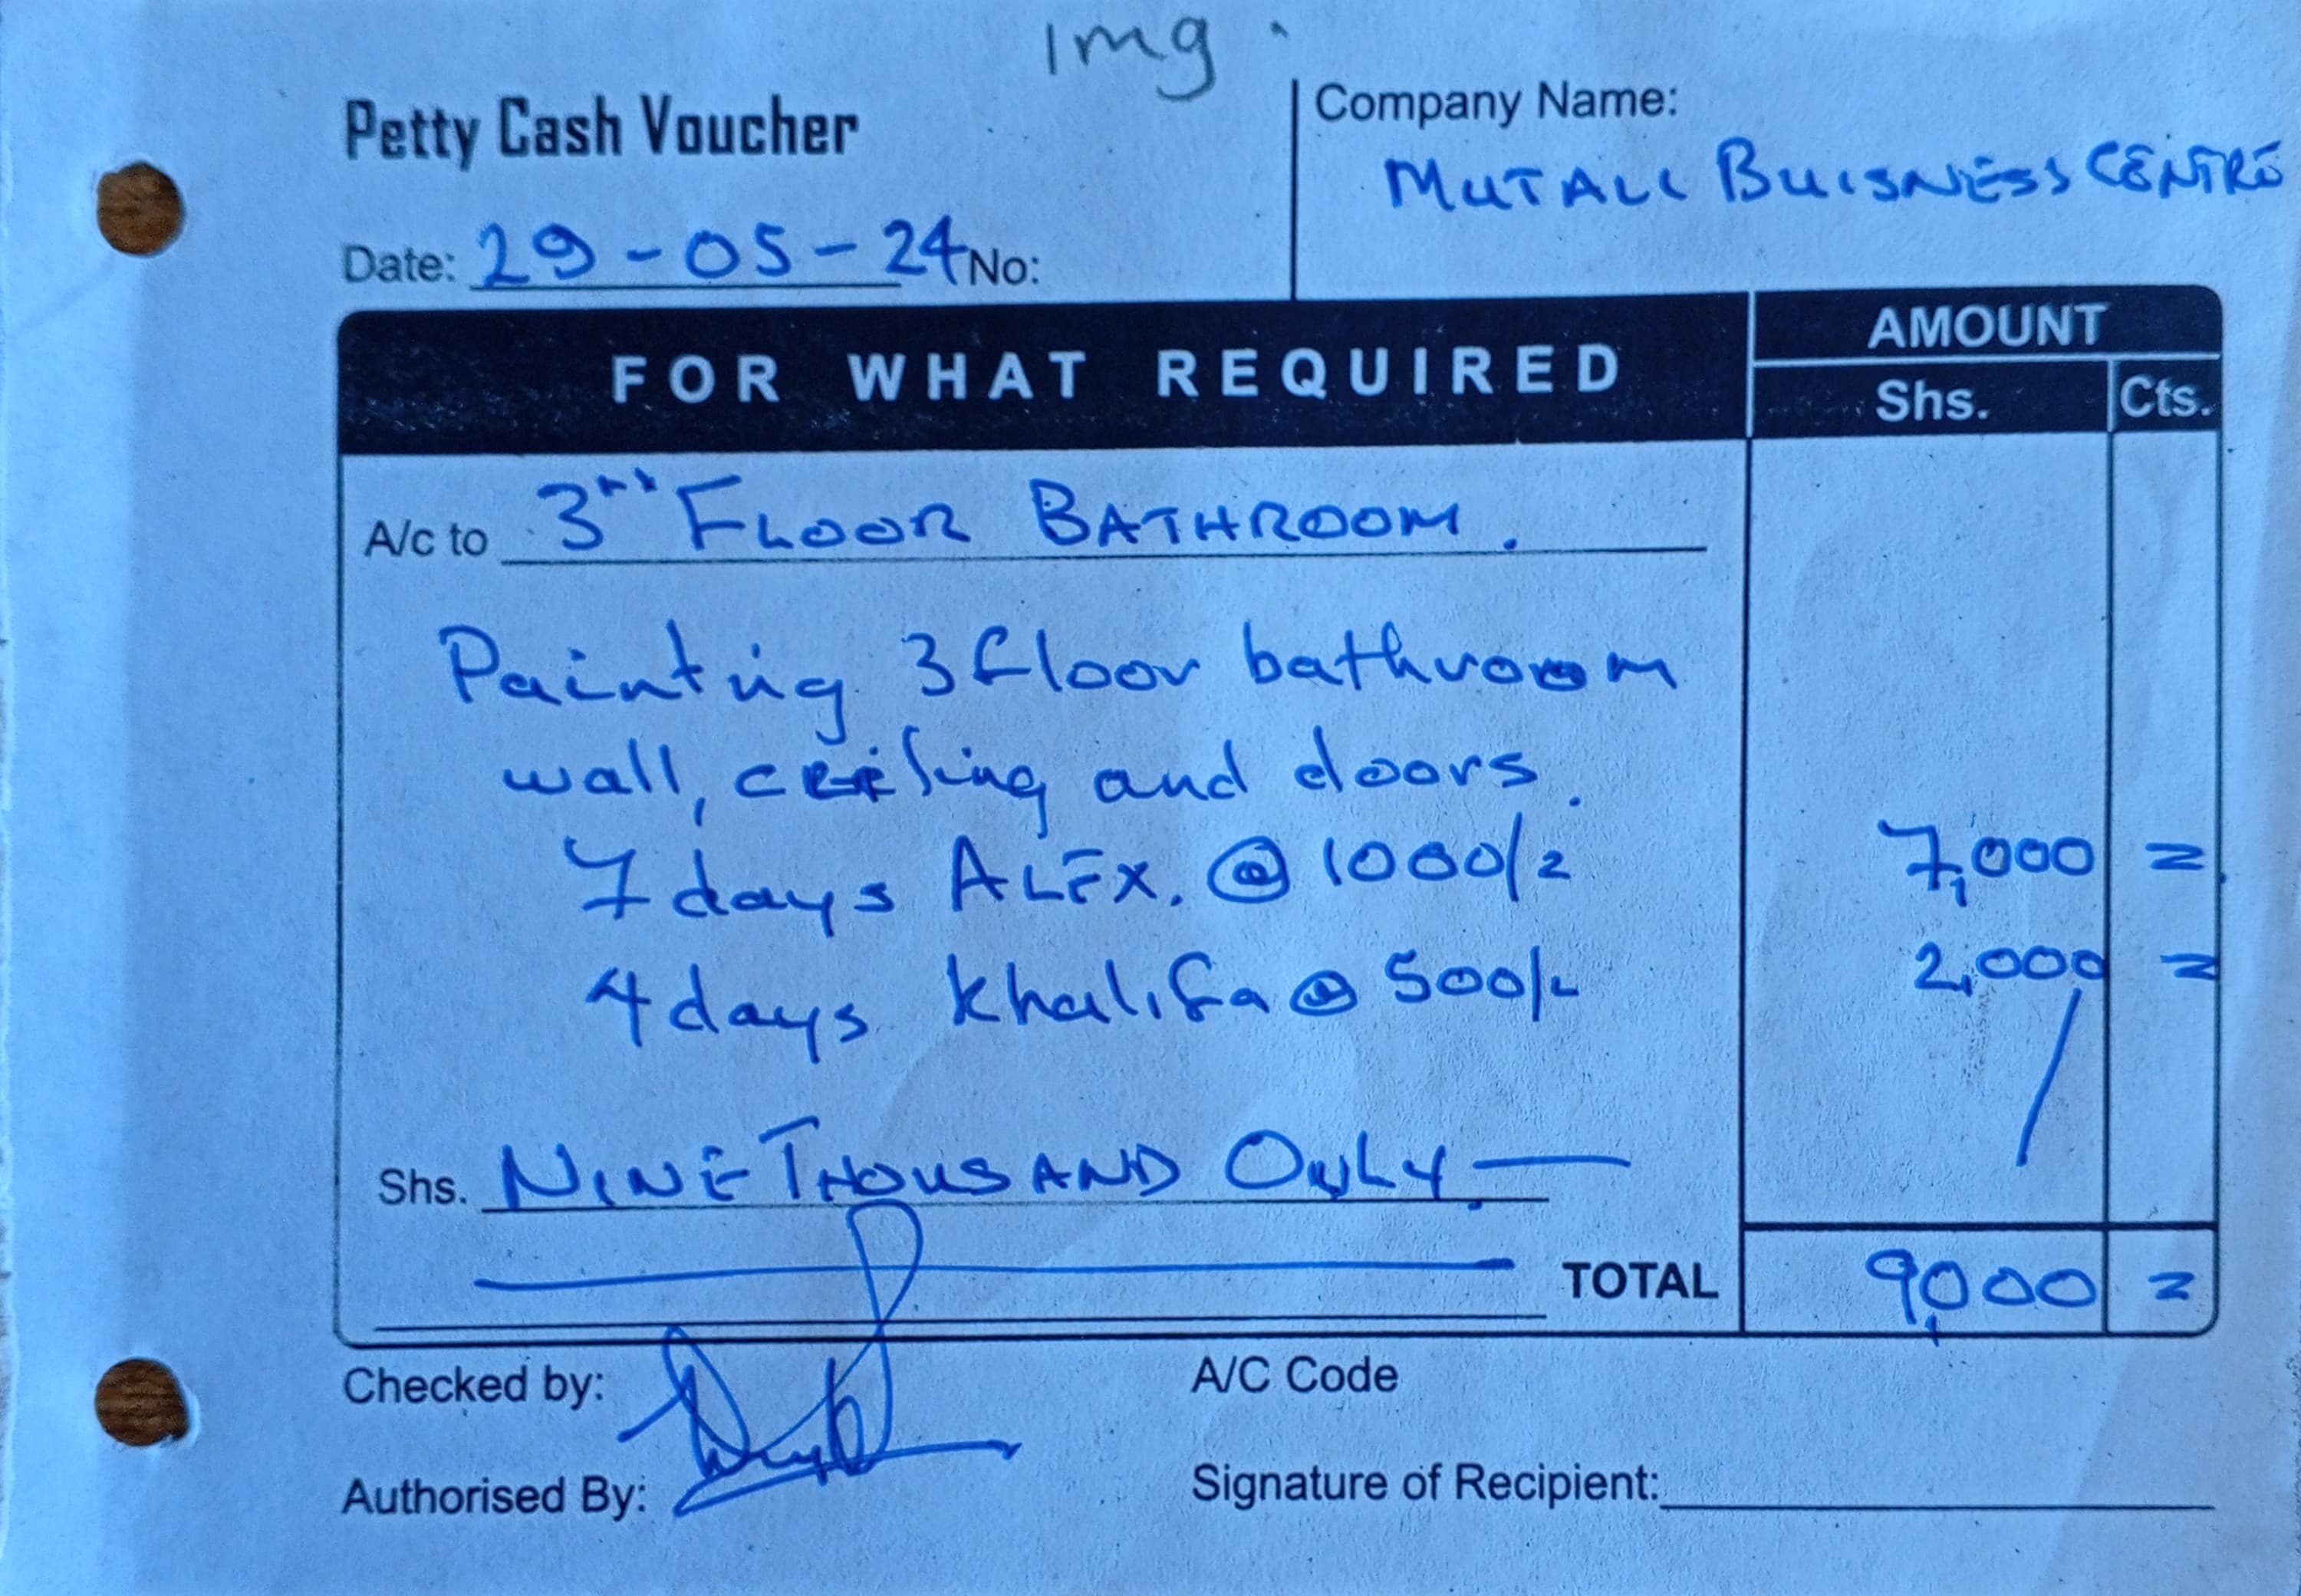 Img.
Petty Cash Voucher
Company Name:
MUTALL BUISNESS CENTRE
Date: 29-05-24 No:
FOR WHAT REQUIRED
AMOUNT
Shs. Cts.
A/c to 3rd FLOOR BATHROOM.
Painting 3 floor bathroom
wall, ceiling and doors.
7 days ALEX. @ 1000/= 7,000 =
4 days Khalifa @ 500/= 2,000 =
Shs. NINE THOUSAND ONLY
TOTAL 9,000 =
Checked by:
A/C Code
Authorised By:
Signature of Recipient: